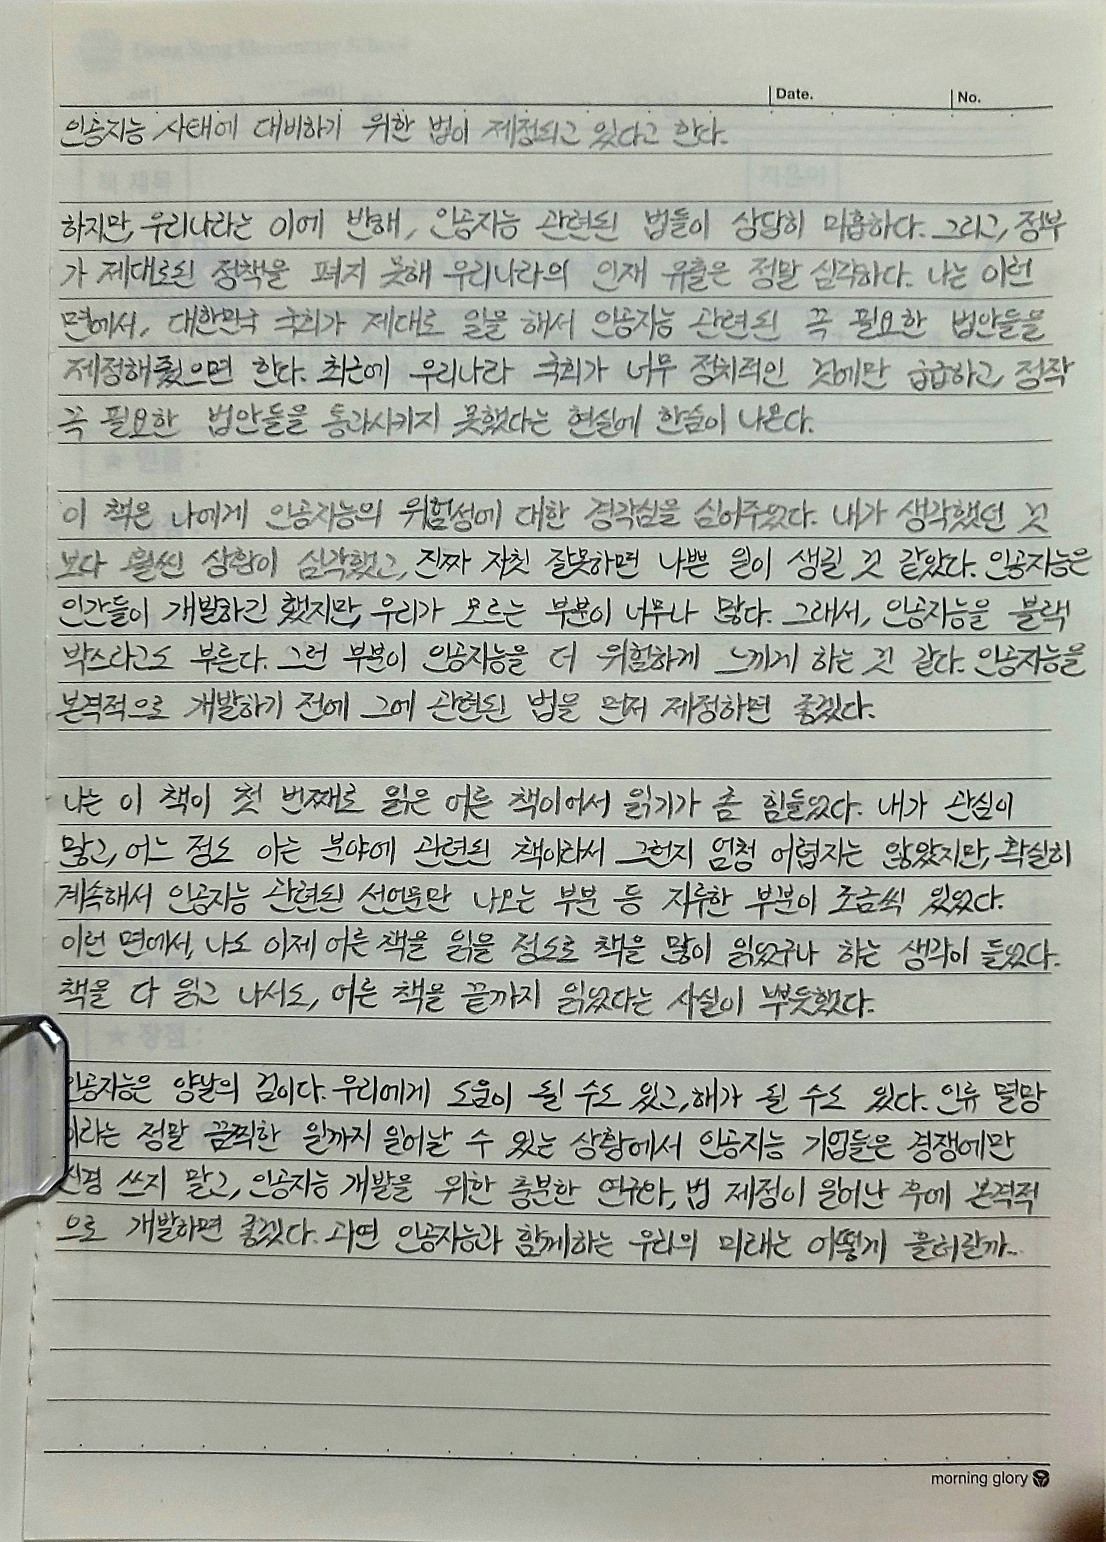 Date.
No.
인공지능 사태에 대비하기 위한 법이 제정되고 있다고 한다.
하지만, 우리나라는 이에 반해, 인공지능 관련된 법들이 상당히 미흡하다. 그리고, 정부
가 제대로된 정책을 펴지 못해 우리나라의 인재 유출은 정말 심각하다. 나는 이런
면에서, 대한민국 국회가 제대로 일을 해서 인공지능 관련된 꼭 필요한 법안들을
제정해줬으면 한다. 최근에 우리나라 국회가 너무 정치적인 것에만 급급하고, 정작
꼭 필요한 법안들을 통과시키지 못했다는 현실에 한숨이 나온다.
이 책은 나에게 인공지능의 위험성에 대한 경각심을 심어주었다. 내가 생각했던 것
보다 훨씬 상황이 심각했고, 진짜 자칫 잘못하면 나쁜 일이 생길 것 같았다. 인공지능은
인간들이 개발하긴 했지만, 우리가 모르는 부분이 너무나 많다. 그래서, 인공지능을 블랙
박스라고도 부른다. 그런 부분이 인공지능을 더 위험하게 느끼게 하는 것 같다. 인공지능을
본격적으로 개발하기 전에 그에 관련된 법을 먼저 제정하면 좋겠다.
나는 이 책이 첫 번째로 읽은 어른 책이어서 읽기가 좀 힘들었다. 내가 관심이
많고, 어느 정도 아는 분야에 관련된 책이라서 그런지 엄청 어렵지는 않았지만, 확실히
계속해서 인공지능 관련된 선언문만 나오는 부분 등 지루한 부분이 조금씩 있었다.
이런 면에서, 나도 이제 어른 책을 읽을 정도로 책을 많이 읽었구나 하는 생각이 들었다.
책을 다 읽고 나서도, 어른 책을 끝까지 읽었다는 사실이 뿌듯했다.
인공지능은 양날의 검이다. 우리에게 도움이 될 수도 있고, 해가 될 수도 있다. 인류 멸망
이라는 정말 끔찍한 일까지 일어날 수 있는 상황에서 인공지능 기업들은 경쟁에만
신경 쓰지 말고, 인공지능 개발을 위한 충분한 연구와, 법 제정이 일어난 후에 본격적
으로 개발하면 좋겠다. 과연 인공지능과 함께하는 우리의 미래는 어떻게 흘러갈까..
morning glory